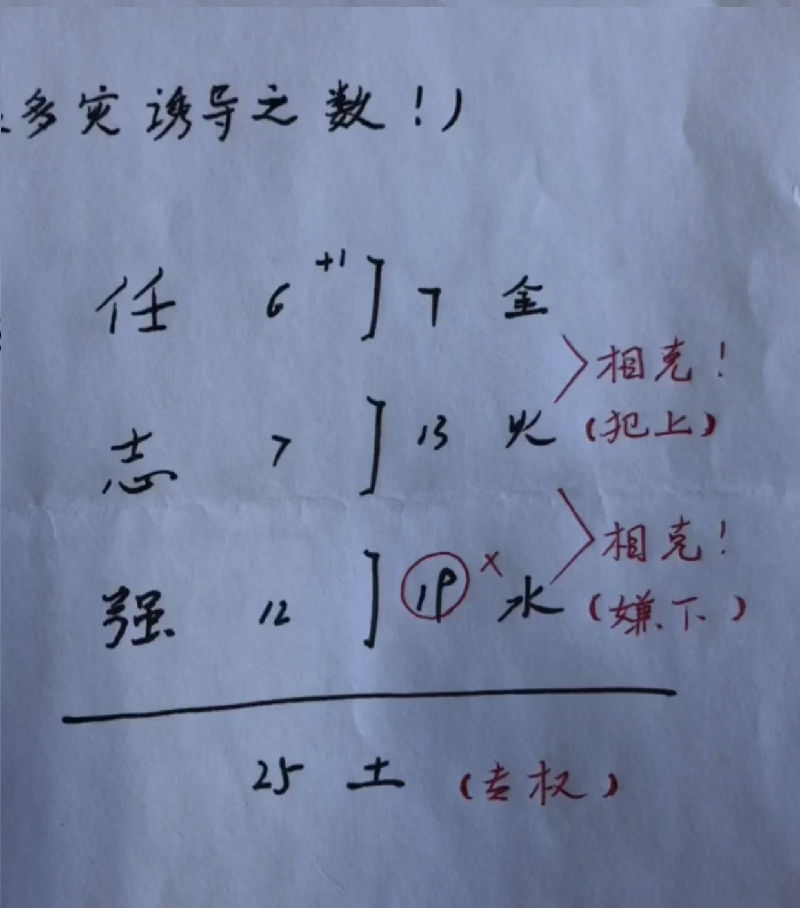 多灾诱导之数！）
任 6 +1 ] 7 金
相克！
志 7 ] 13 火 （犯上）
相克！
强 12 ] 19 × 水 （嫌下）
25 土 （专权）